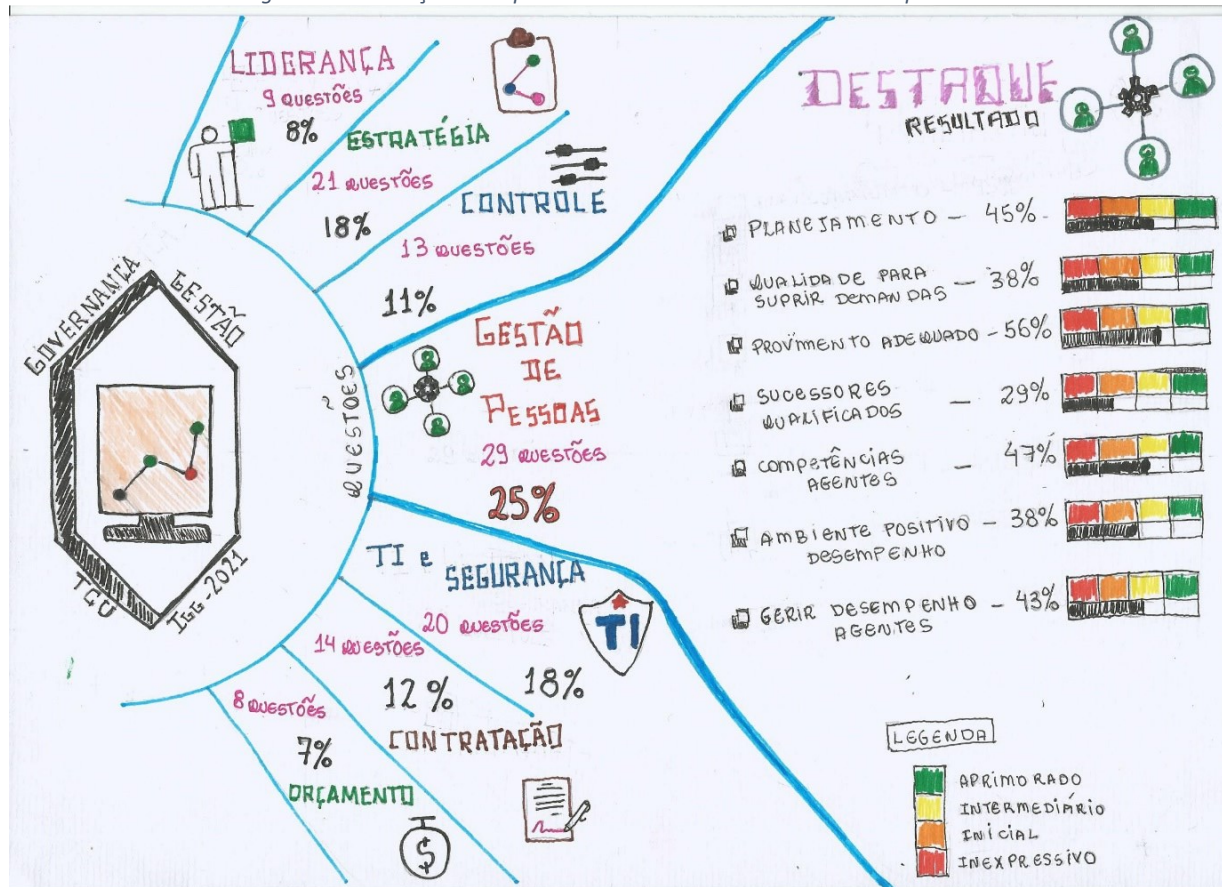 LIDERANÇA
9 QUESTÕES
8%
ESTRATÉGIA
21 QUESTÕES
18%
CONTROLE
13 QUESTÕES
11%
GOVERNANÇA
GESTÃO
TCU
IGG-2021
QUESTÕES
GESTÃO
DE
PESSOAS
29 QUESTÕES
25%
TI e
SEGURANÇA
20 QUESTÕES
18%
TI
14 QUESTÕES
12%
CONTRATAÇÃO
8 QUESTÕES
7%
ORÇAMENTO
$
DESTAQUE
RESULTADO
PLANEJAMENTO - 45%
QUALIDADE PARA
SUPRIR DEMANDAS - 38%
PROVIMENTO ADEQUADO - 56%
SUCESSORES
QUALIFICADOS - 29%
COMPETÊNCIAS
AGENTES - 47%
AMBIENTE POSITIVO - 38%
DESEMPENHO
GERIR DESEMPENHO - 43%
AGENTES
LEGENDA
APRIMORADO
INTERMEDIÁRIO
INICIAL
INEXPRESSIVO